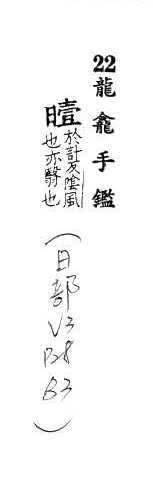 22龍龕手鑑
曀於計反陰風
也亦翳也
(日部 V3
P28
B3)